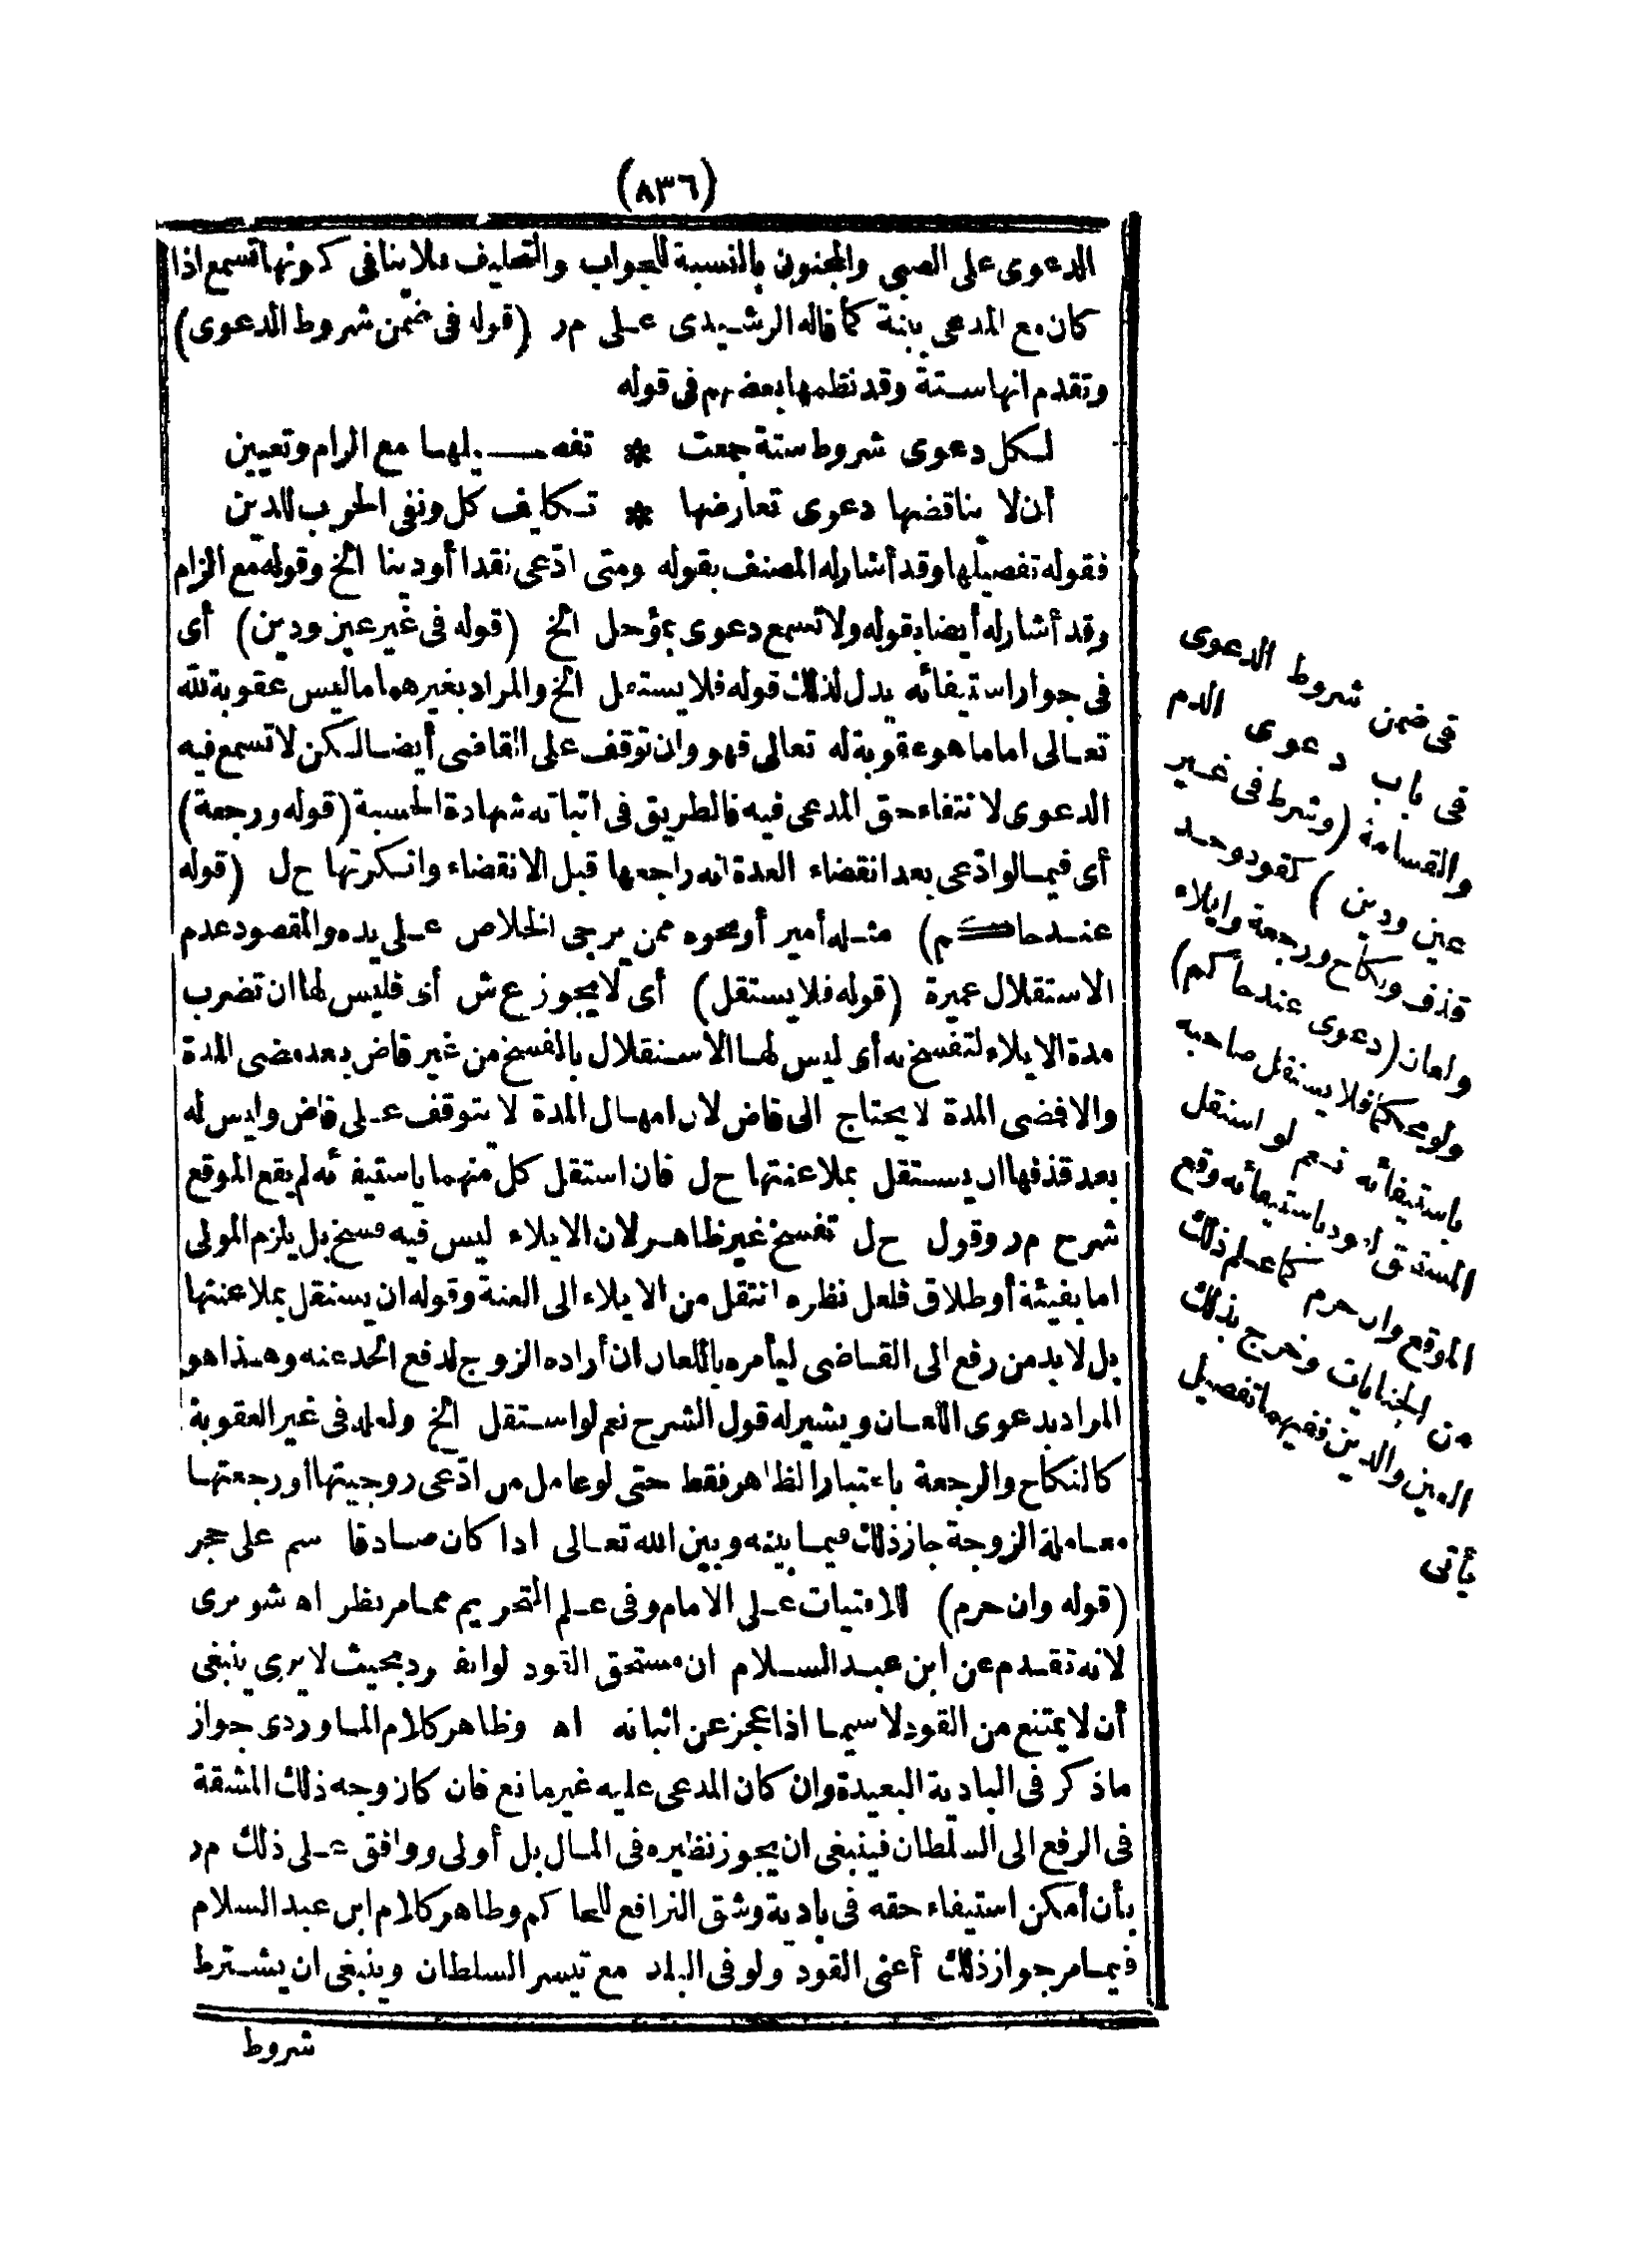 (٨٣٦)
الدعوى على الصبى والمجنون بالنسبة للجواب والتحليف فلا ينافى كونها تسمع اذا
كان مع المدعى بينة كما قاله الرشيدى على م ر (قوله فى ضمن شروط الدعوى)
وتقدم انها ستة وقد نظمها بعضهم فى قوله
لكل دعوى شروط ستة جمعت * تفصيلها مع الزام وتعيين
أن لا يناقضها دعوى تعارضها * تكليف كل ونفى الحرب للدين
فقوله تفصيلها وقد أشار له المصنف بقوله ومتى ادّعى نقدا أو دينا الخ وقوله مع الزام
وقد أشار له أيضا بقوله ولا تسمع دعوى بمؤجل الخ (قوله فى غير عين ودين) أى
فى جواز استيفائه يدل لذلك قوله فلا يستقل الخ والمراد بغيرهما ما ليس عقوبة لله
تعالى اما ما هو عقوبة له تعالى فهو وان توقف على القاضى أيضا لكن لا تسمع فيه
الدعوى لانتفاء حق المدعى فيه فالطريق فى اثباته شهادة الحسبة (قوله ورجعة)
أى فيما لو ادّعى بعد انقضاء العدة انه راجعها قبل الانقضاء وانكرتها ح ل (قوله
عند حاكم) مثله أمير أو نحوه ممن يرجى الخلاص على يده والمقصود عدم
الاستقلال عميرة (قوله فلا يستقل) أى لا يجوز ع ش أى فليس لها ان تضرب
مدة الايلاء لتفسخ به أى ليس لها الاستقلال بالفسخ من غير قاض بعد مضى المدة
والا فمضى المدة لا يحتاج الى قاض لان امهال المدة لا يتوقف على قاض وليس له
بعد قذفها ان يستقل بملاعنتها ح ل فان استقل كل منهما باستيفائه لم يقع الموقع
شرح م ر وقول ح ل تفسخ غير ظاهر لان الايلاء ليس فيه فسخ بل يلزم المولى
اما بفيئة أو طلاق فلعل نظره انتقل من الايلاء الى العنة وقوله ان يستقل بملاعنتها
بل لا بد من رفع الى القاضى ليأمره باللعان ان أراده الزوج لدفع الحد عنه وهذا هو
المراد بدعوى اللعان ويشير له قول الشرح نعم لو استقل الخ ولعله فى غير العقوبة
كالنكاح والرجعة باعتبار الظاهر فقط حتى لو عامل من ادّعى زوجيتها أو رجعتها
معاملة الزوجة جاز ذلك فيما بينه وبين الله تعالى اذا كان صادقا سم على حجر
(قوله وان حرم) للافتيات على الامام وفى علم التحريم مما مر نظر اه شوبرى
لانه تقدم عن ابن عبد السلام ان مستحق القود لو انفرد بحيث لا يرى ينبغى
أن لا يمتنع من القود لا سيما اذا عجز عن اثباته اه وظاهر كلام الماوردى جواز
ما ذكر فى البادية البعيدة وان كان المدعى عليه غير مانع فان كان وجه ذلك المشقة
فى الرفع الى السلطان فينبغى ان يجوز نظيره فى المال بل أولى ووافق على ذلك م ر
بأن أمكن استيفاء حقه فى بادية وشق الترافع للحاكم وظاهر كلام ابن عبد السلام
فيما مر جواز ذلك أعنى القود ولو فى البلد مع تيسر السلطان وينبغى ان يشترط
شروط
فى ضمن شروط الدعوى
فى باب دعوى الدم
والقسامة (وشرط فى غير
عين ودين) كقود وحد
قذف ونكاح ورجعة وايلاء
ولعان (دعوى عند حاكم)
ولو محكما فلا يستقل صاحبه
باستيفائه نعم لو استقل
المستحق لقود باستيفائه وقع
الموقع وان حرم كما علم ذلك
من الجنايات وخرج بذلك
العين والدين ففيهما تفصيل
يأتى